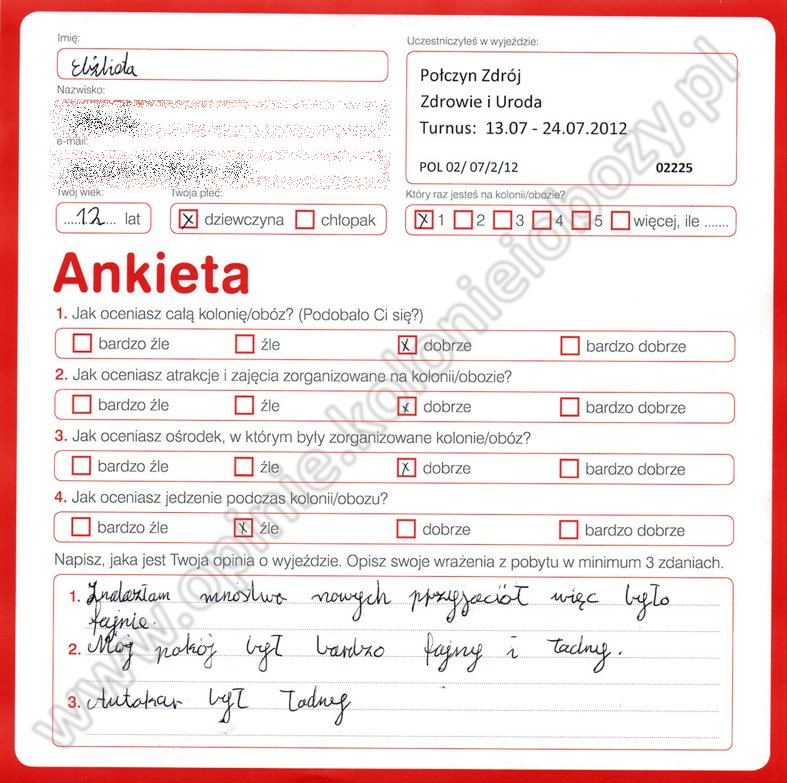 Imię:
Elżbieta
Uczestniczyłeś w wyjeździe:
Połczyn Zdrój
Zdrowie i Uroda
Turnus: 13.07 - 24.07.2012
POL 02/ 07/2/12 02225
Nazwisko:
e-mail:
Twój wiek:
12 lat
Twoja płeć:
x dziewczyna chłopak
Który raz jesteś na kolonii/obozie?
x 1 2 3 4 5 więcej, ile .......
Ankieta
1. Jak oceniasz całą kolonię/obóz? (Podobało Ci się?)
bardzo źle źle x dobrze bardzo dobrze
2. Jak oceniasz atrakcje i zajęcia zorganizowane na kolonii/obozie?
bardzo źle źle x dobrze bardzo dobrze
3. Jak oceniasz ośrodek, w którym były zorganizowane kolonie/obóz?
bardzo źle źle x dobrze bardzo dobrze
4. Jak oceniasz jedzenie podczas kolonii/obozu?
bardzo źle x źle dobrze bardzo dobrze
Napisz, jaka jest Twoja opinia o wyjeździe. Opisz swoje wrażenia z pobytu w minimum 3 zdaniach.
1. Znalazłam mnostwo nowych przyjaciół więc było
fajnie.
2. Mój pokój był bardzo fajny i ładny.
3. Autokar był ładny
www.opinie.kolonieiobozy.pl